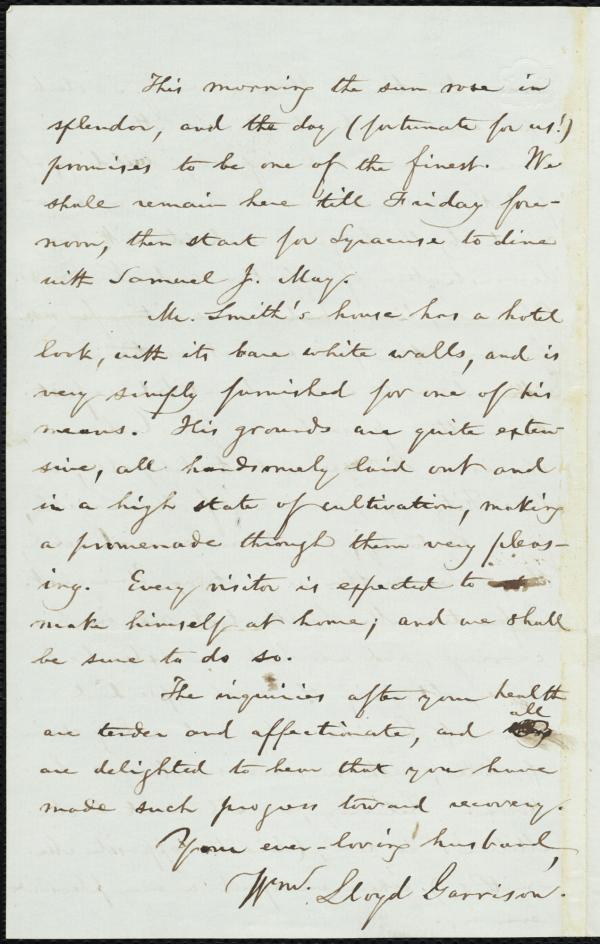 This morning the sun rose in
splendor, and the day (fortunate for us!)
promises to be one of the finest. We
shall remain here till Friday fore-
noon, then start for Syracuse to dine
with Samuel J. May.
Mr. Smith's house has a hotel
look, with its bare white walls, and is
very simply furnished for one of his
means. His grounds are quite exten-
sive, all handsomely laid out and
in a high state of cultivation, making
a promenade through them very pleas-
ing. Every visitor is expected to
make himself at home; and we shall
be sure to do so.
The inquiries after your health
are tender and affectionate, and all
are delighted to hear that you have
made such progress toward recovery.
Your ever-loving husband,
Wm. Lloyd Garrison.